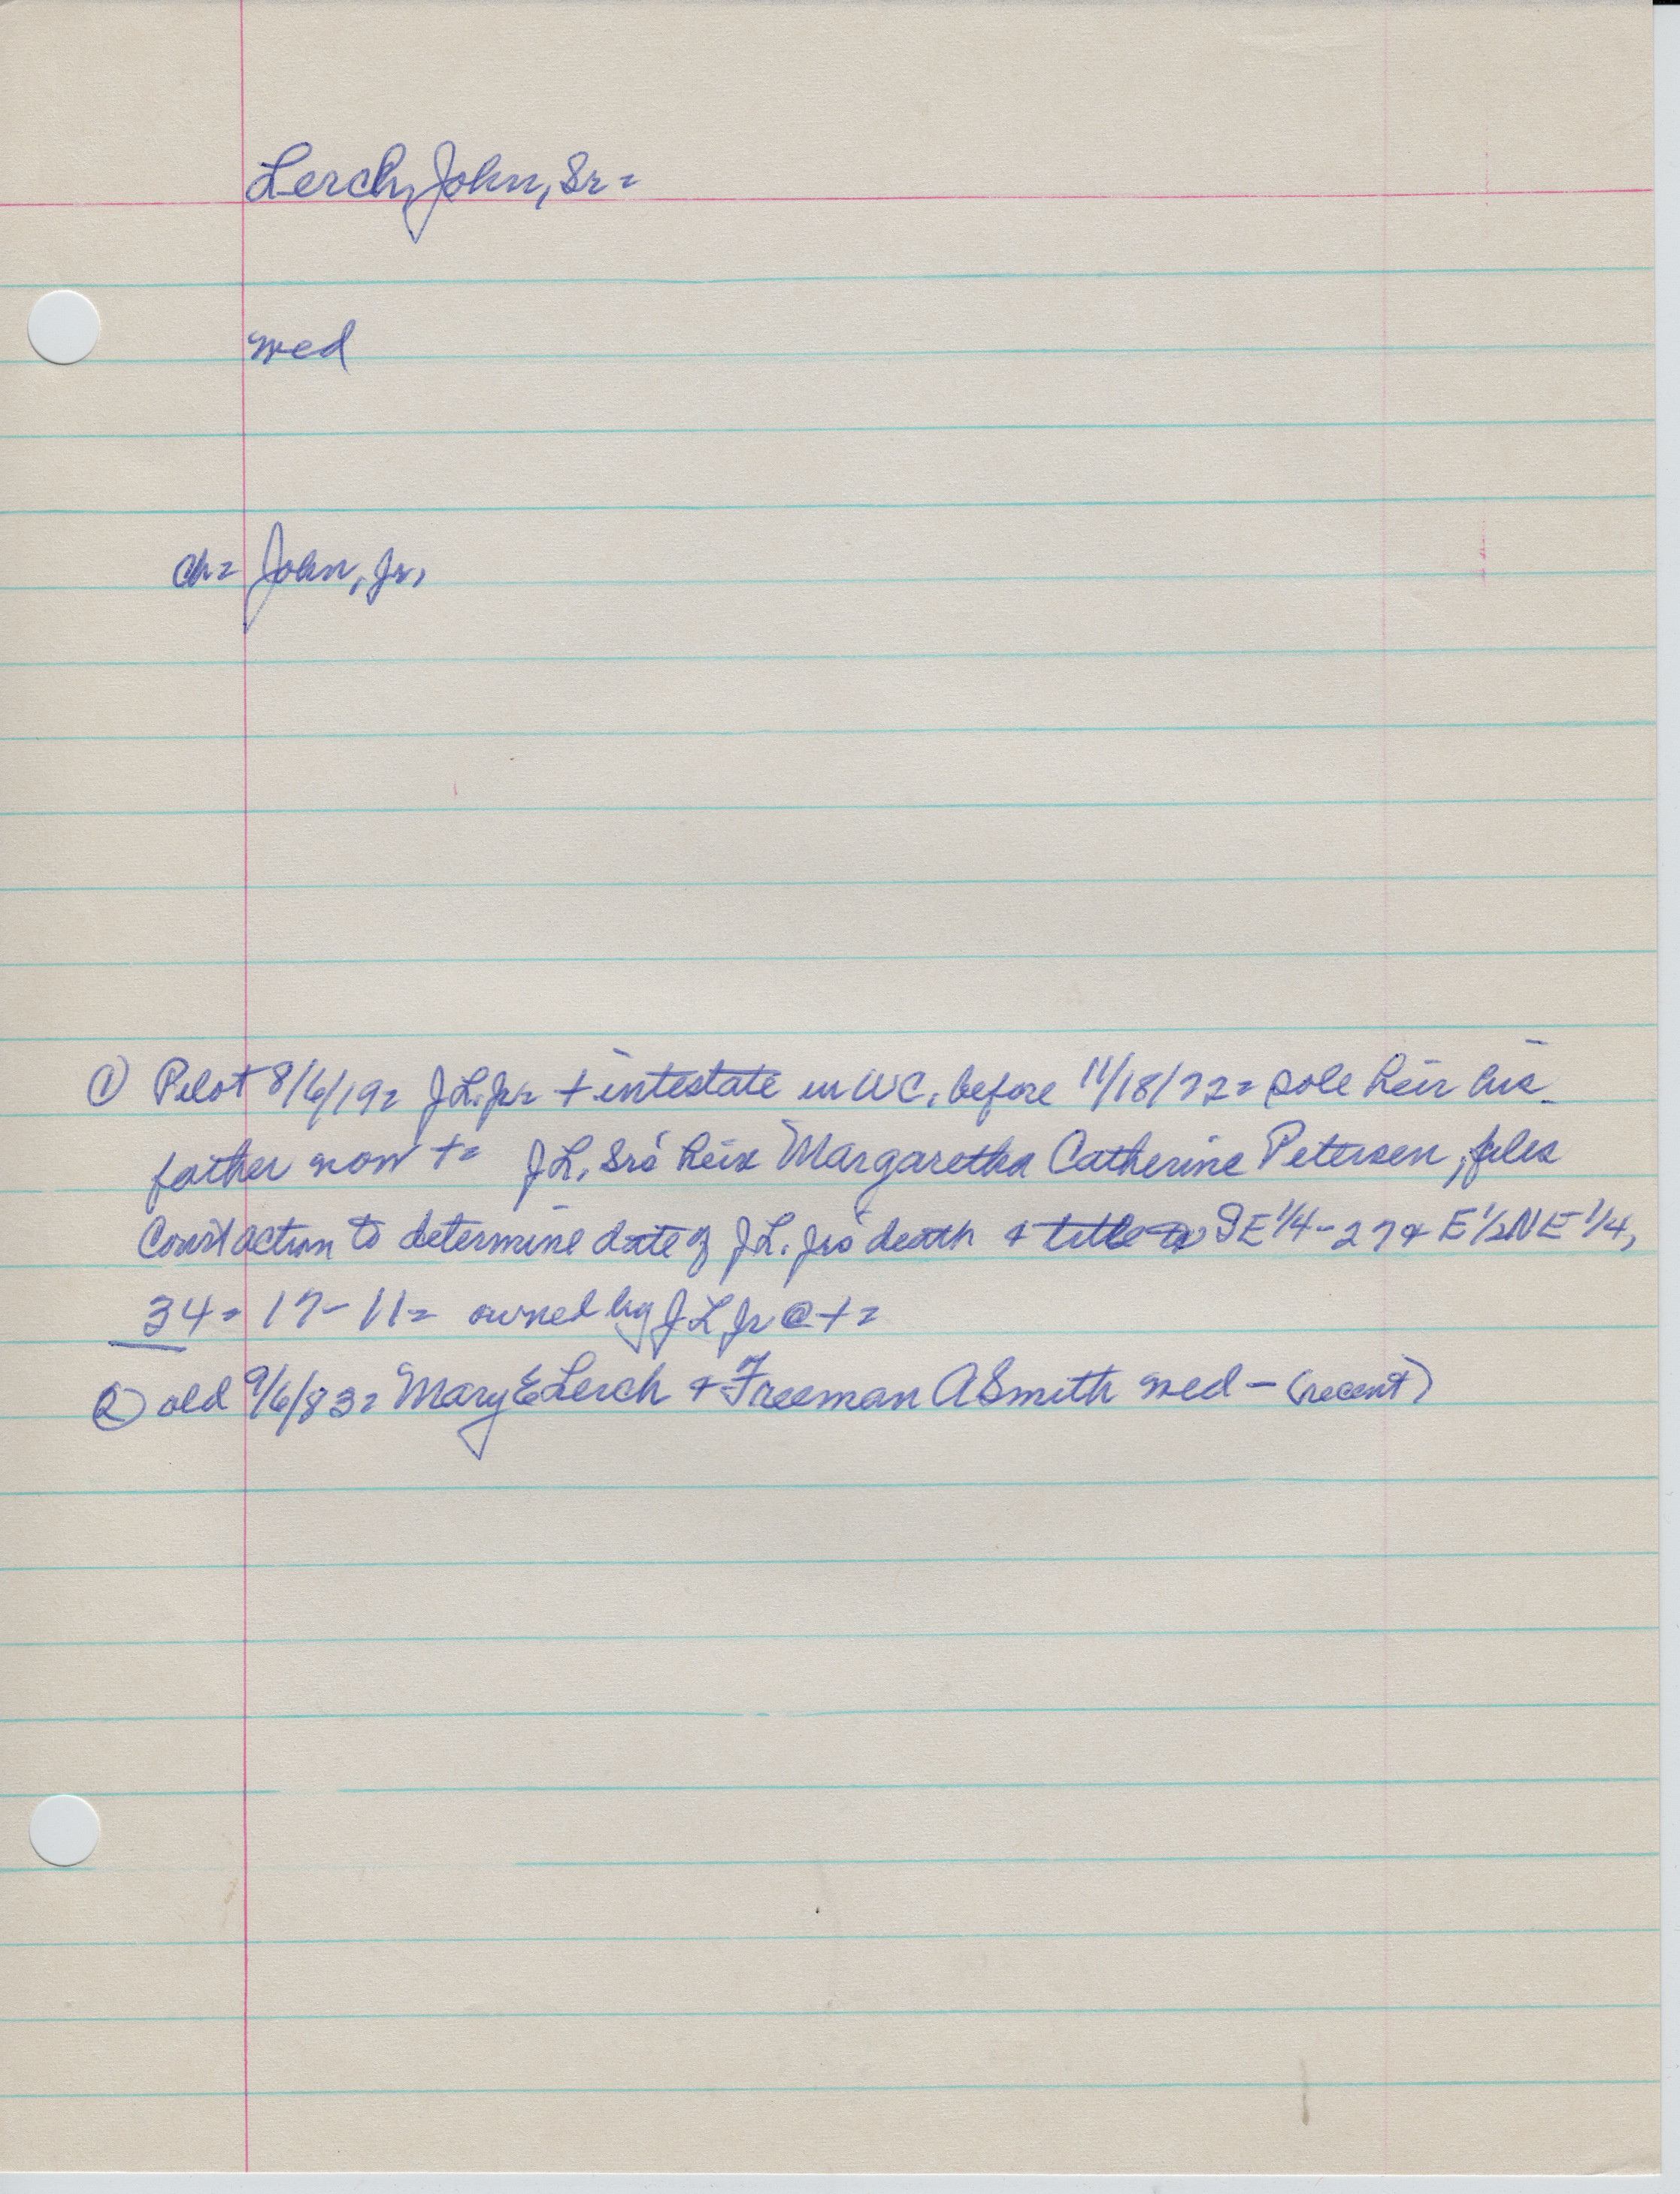 Lerch, John, Sr =
wed
ch = John, Jr.
① Pilot 8/6/19 = J L. Jr = + intestate in WC. before 11/18/22 = sole heir his
father now + = J L, Sr's heir Margaretha Catherine Petersen, files
Court action to determine date of J L. Jr's death & title to SE 1/4 - 27 & E 1/2 NE 1/4,
34 = 17 - 11 = owned by J L Jr @ + =
② old 9/6/83 = Mary E Lerch & Freeman A Smith wed - (recent)